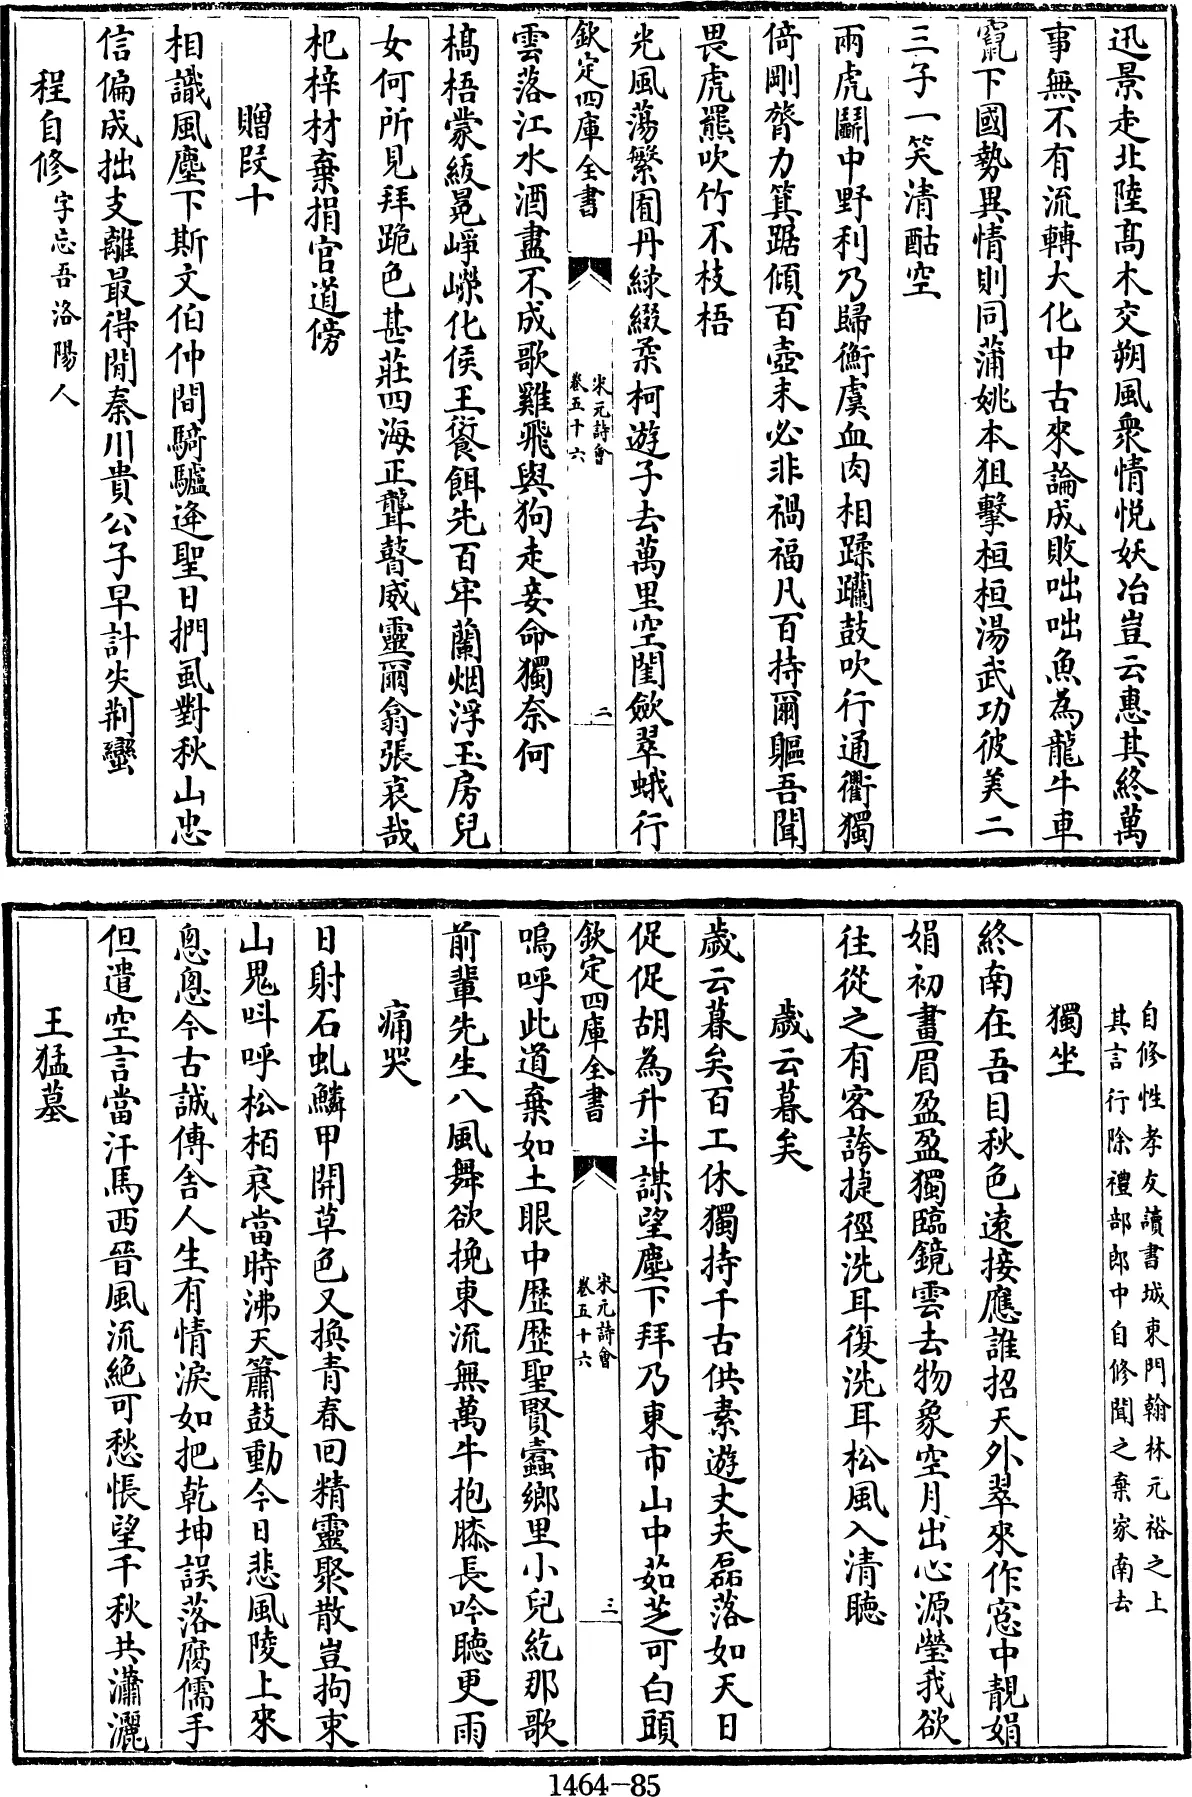 迅景走北陸髙木交朔風衆情悦妖冶豈云惠其終萬
事無不有流轉大化中古來論成敗咄咄魚為龍牛車
竄下國勢異情則同蒲姚本狙擊桓桓湯武功彼美二
三子一笑清酤空
兩虎鬭中野利乃歸衡虞血肉相蹂躪鼓吹行通衢獨
倚剛膂力箕踞傾百壺未必非禍福凡百持爾軀吾聞
畏虎羆吹竹不枝梧
光風蕩繁囿丹緑綴柔柯遊子去萬里空閨斂翠蛾行
欽定四庫全書
宋元詩會
卷五十六
二
雲落江水酒盡不成歌雞飛與狗走妾命獨奈何
槁梧蒙紱冕崢嶸化侯王餈餌先百牢蘭烟浮玉房兒
女何所見拜跪色甚莊四海正聾瞽威靈爾翕張哀哉
杞梓材棄捐官道傍
贈段十
相識風塵下斯文伯仲間騎驢逄聖日捫虱對秋山忠
信偏成拙支離最得閒秦川貴公子早計失荆蠻
程自修字忘吾洛陽人
自修性孝友讀書城東門翰林元裕之上
其言行除禮部郎中自修聞之棄家南去
獨坐
終南在吾目秋色遠接應誰招天外翠來作窓中靚娟
娟初畫眉盈盈獨臨鏡雲去物象空月出心源瑩我欲
往從之有客誇捷徑洗耳復洗耳松風入清聴
歲云暮矣
歲云暮矣百工休獨持千古供素遊丈夫磊落如天日
促促胡為升斗謀望塵下拜乃東市山中茹芝可白頭
欽定四庫全書
宋元詩會
卷五十六
三
嗚呼此道棄如土眼中歴歴聖賢蠧鄉里小兒紇那歌
前輩先生八風舞欲挽東流無萬牛抱膝長吟聴更雨
痛哭
日射石虬鱗甲開草色又換青春回精靈聚散豈拘束
山鬼呌呼松栢哀當時沸天簫鼓動今日悲風陵上來
悤悤今古誠傳舍人生有情淚如把乾坤誤落腐儒手
但遣空言當汗馬西晉風流絶可愁悵望千秋共瀟灑
王猛墓
1464-85